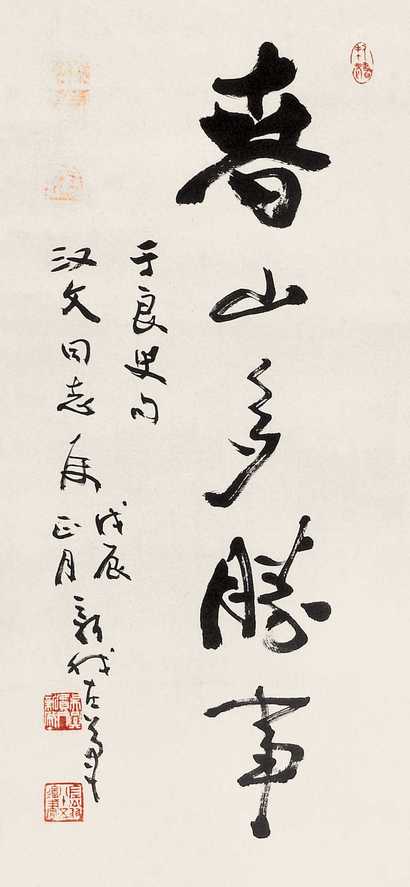 春山多勝事
于良史句
汉文同志属
戊辰
正月
新我左笔